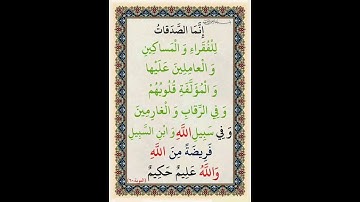 إِنَّمَا الصَّدَقَاتُ
لِلْفُقَرَاءِ وَ الْمَسَاكِينِ
وَ الْعَامِلِينَ عَلَيْهَا
وَ الْمُؤَلَّفَةِ قُلُوبُهُمْ
وَ فِي الرِّقَابِ وَ الْغَارِمِينَ
وَ فِي سَبِيلِ اللَّهِ وَ ابْنِ السَّبِيلِ
فَرِيضَةً مِنَ اللَّهِ
وَاللَّهُ عَلِيمٌ حَكِيمٌ